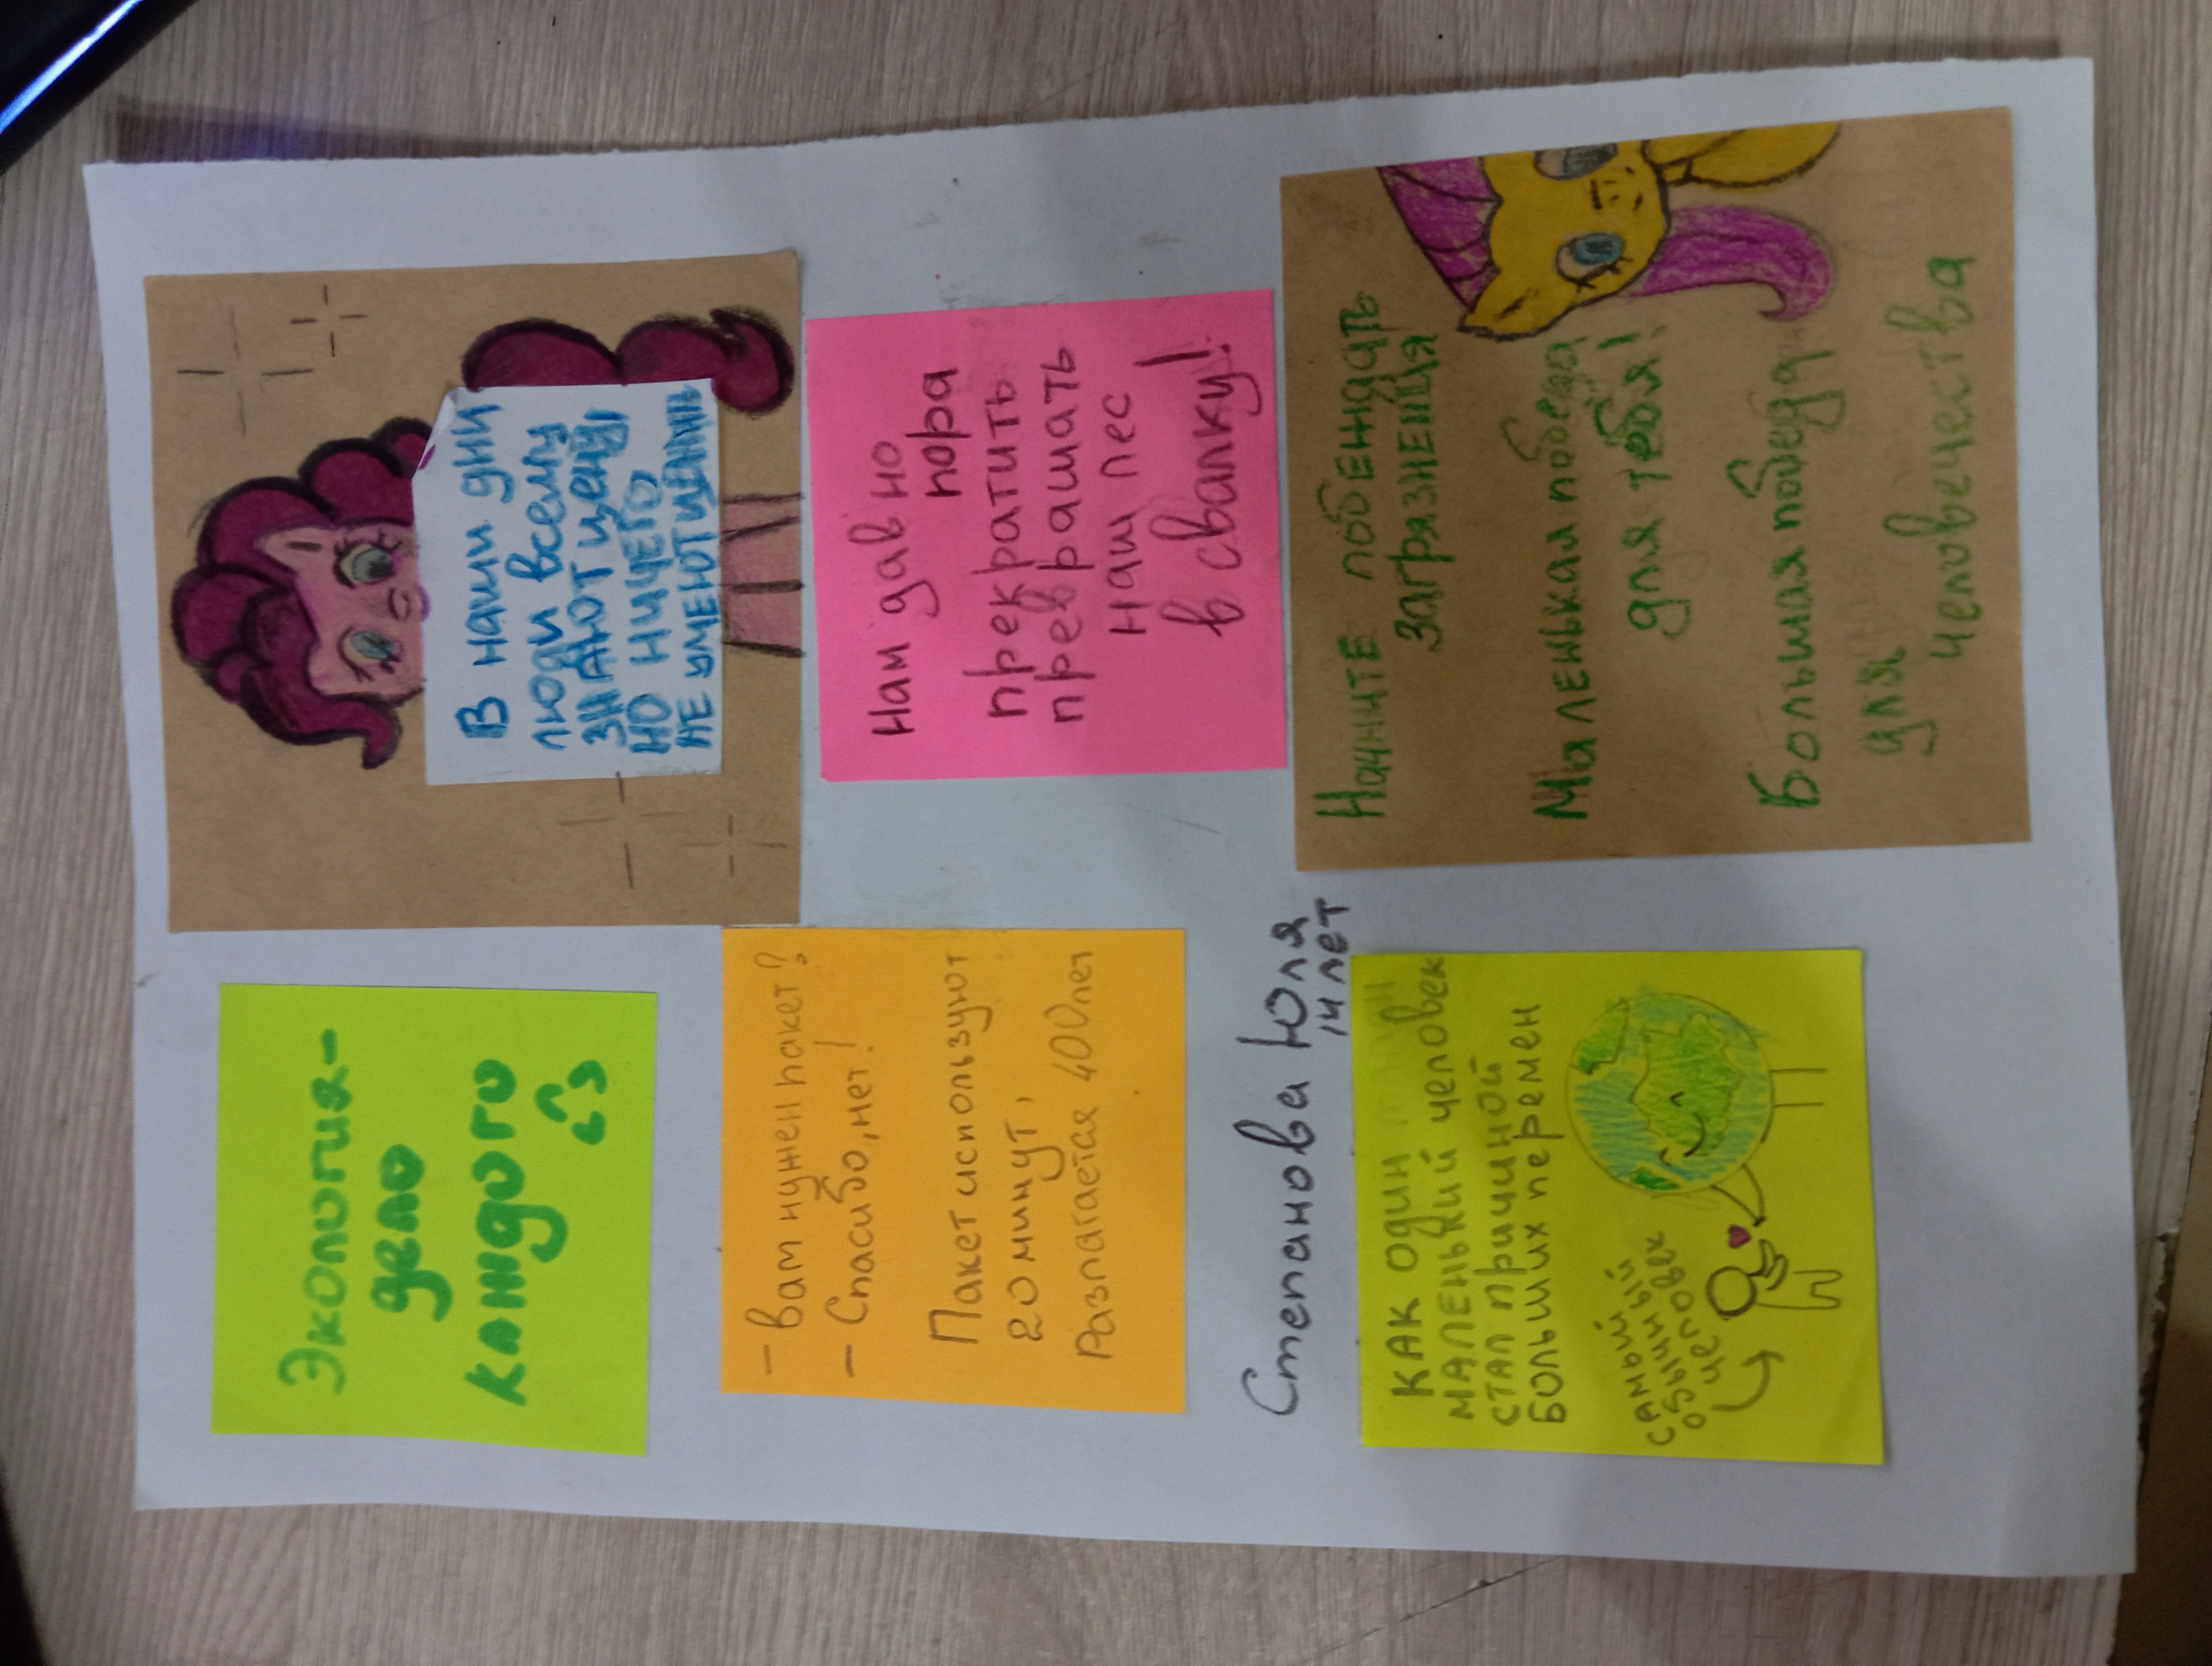 Экология-
дело
каждого
В наши дни
люди всему
знают цену
но ничего
не умеют ценить
- Вам нужен пакет?
- Спасибо, нет!
Пакет используют
20 минут,
Разлагается 400 лет
Нам давно
пора
прекратить
превращать
наш лес
в свалку!
Степанова Юля
14 лет
КАК ОДИН
МАЛЕНЬКИЙ ЧЕЛОВЕК
СТАЛ ПРИЧИНОЙ
БОЛЬШИХ ПЕРЕМЕН
САМЫЙ
ОБЫЧНЫЙ
ЧЕЛОВЕК
Начните побеждать
загрязнения
Маленькая победа
для тебя!
Большая победа
для
человечества